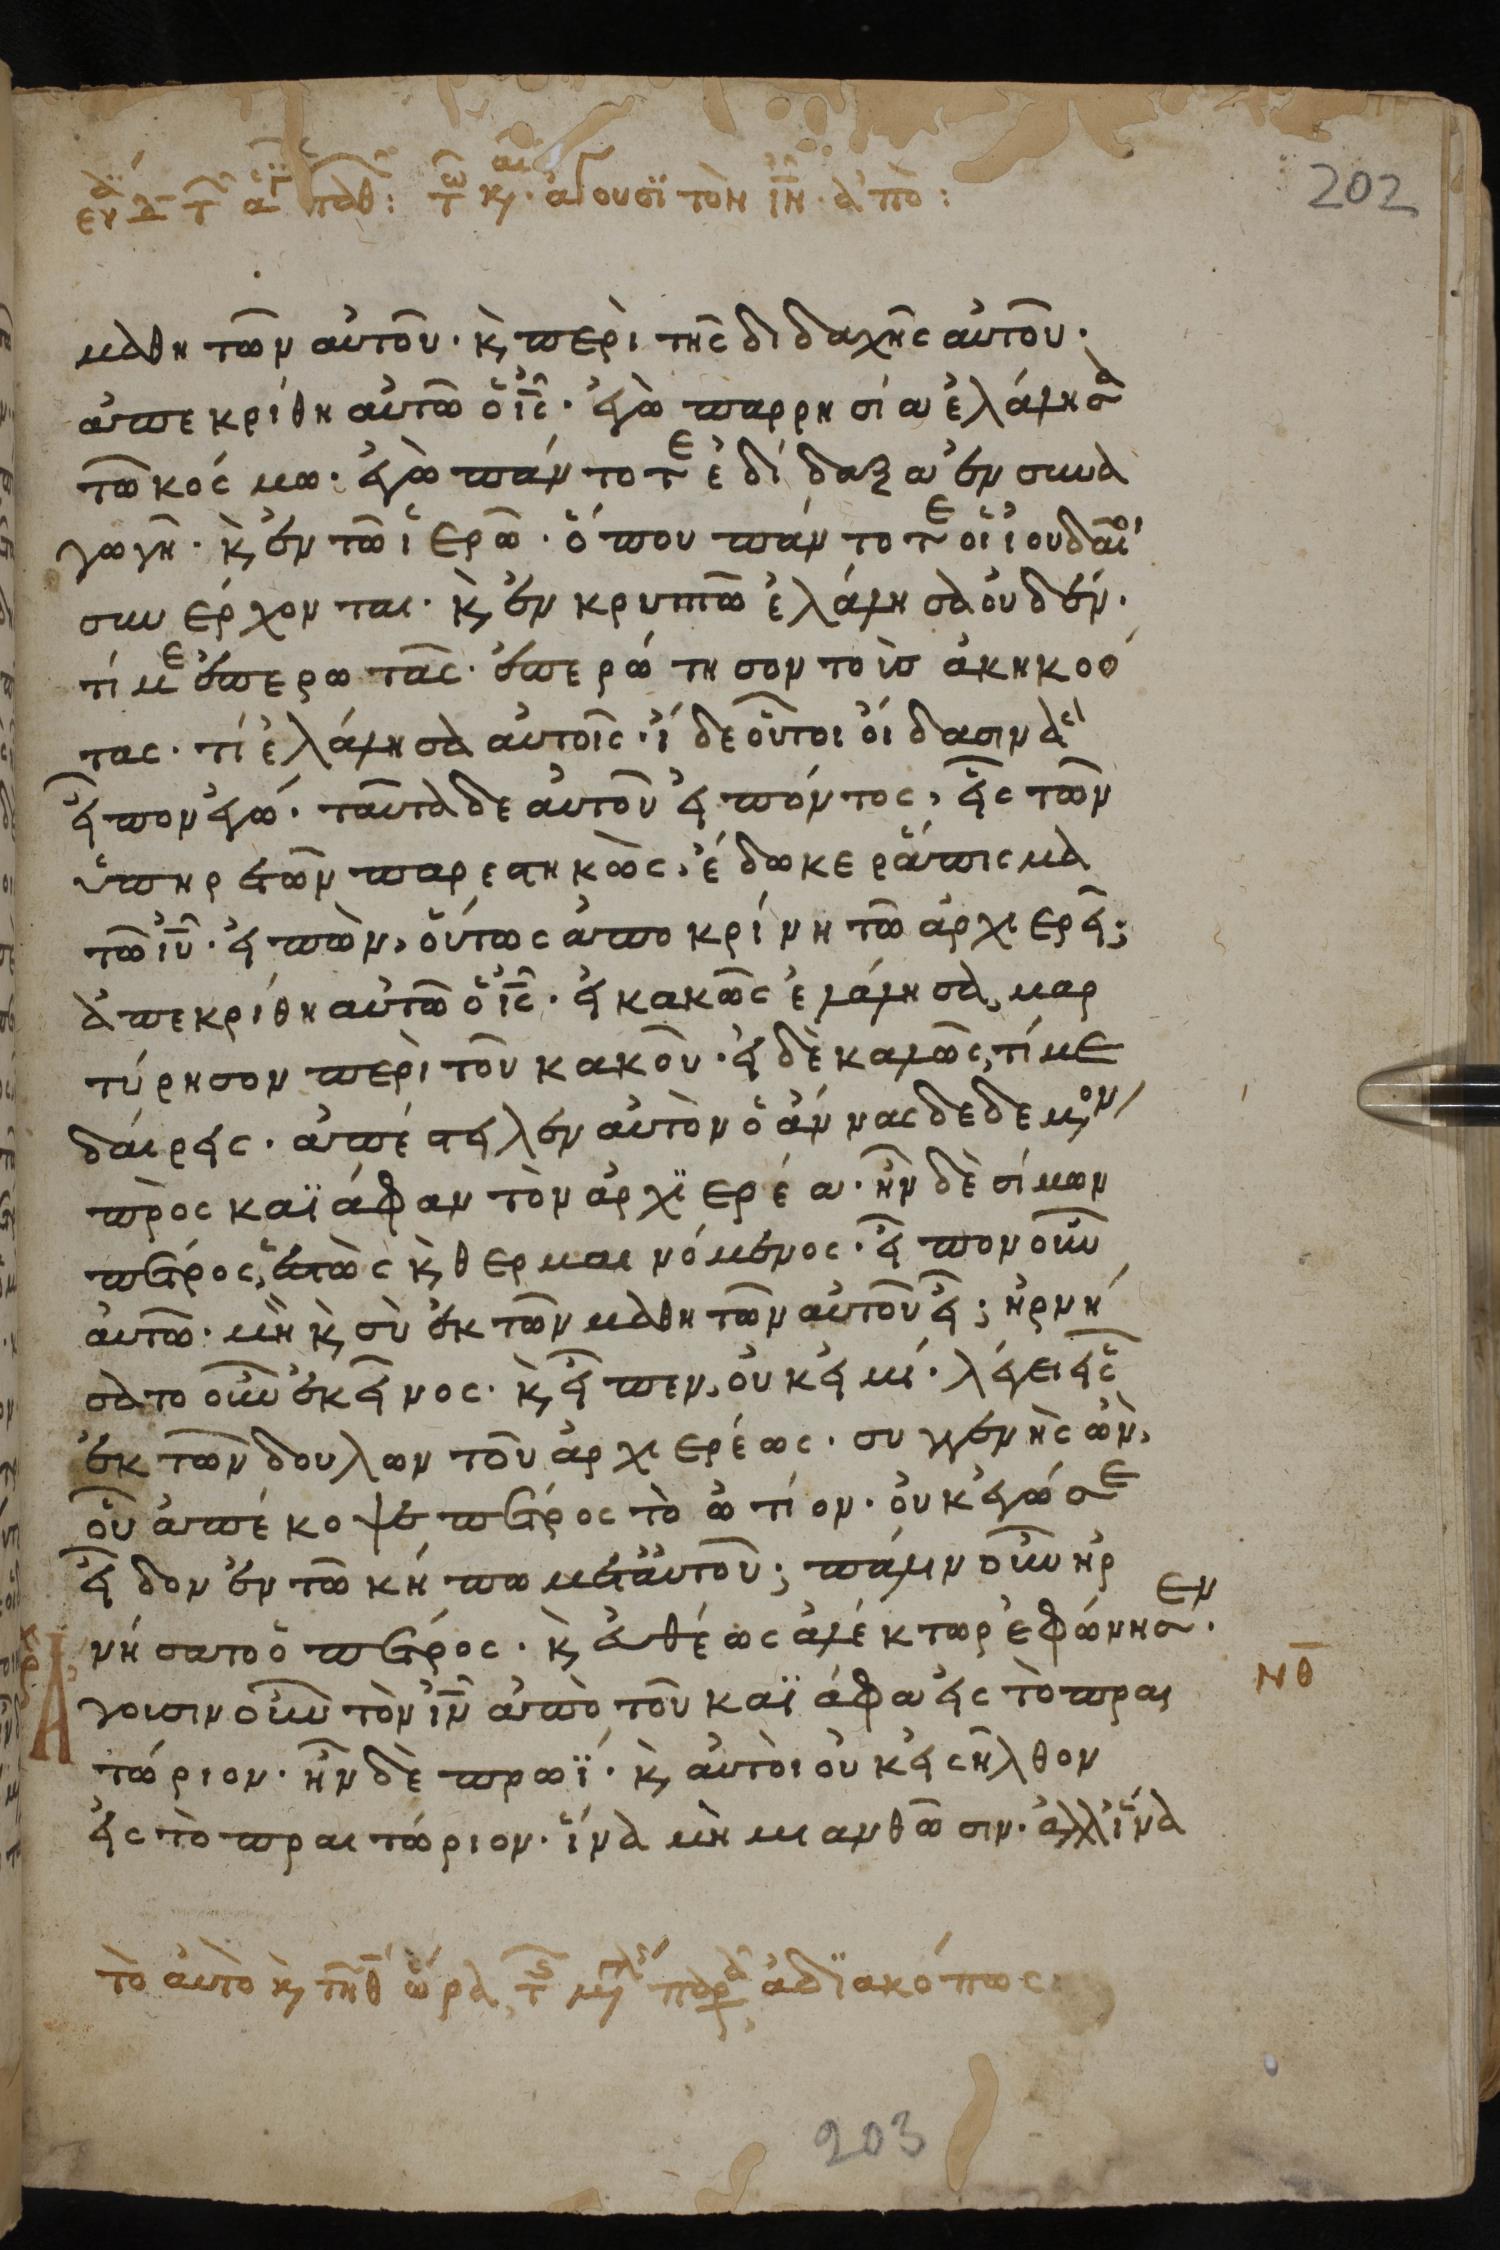 202
ἄγουσϊ τὸν ἰν̅ · ἀπὸ :
μαθητῶν αὐτοῦ · κ περὶ τῆς διδαχῆς αὐτοῦ ·
ἀπεκρίθη αὐτῶ ὁ ἰς̅ · ἐγὼ παρρησία ἐλάλησα
τῶ κόσμω · ἐγὼ πάντοτε ἐδίδαξα ἐν συνα
γωγῆ · κ ἐν τῶ ἱερῶ · ὅπου πάντοτε οἱ ἰουδαῖοι
συνέρχονται · κ ἐν κρυπτῶ ἐλάλησα οὐδέν ·
τί με ἐπερωτᾶς · ἐπερώτησον τοὺσ ἀκηκοό
τας · τί ἐλάλησα αὐτοῖς · ἴδε οὗτοι οἴδασιν ἃ
εἶπον ἐγώ · ταῦτα δε αὐτοῦ εἰπόντος, εἷς τῶν
ὑπηρετῶν παρεστηκὼς, ἔδωκε ῥάπισμα
τῶ ἰυ̅ · εἰπὼν, οὕτως ἀποκρίνη τῶ ἀρχιερεῖ;
ἀπεκρίθη αὐτῶ ὁ ἰς̅ · εἰ κακῶς ἐλάλησα, μαρ
τύρησον περὶ τοῦ κακοῦ · εἰ δὲ καλῶς, τί με
δαίρεις · ἀπέστειλεν αὐτὸν ὁ ἄννας δεδεμένον
πρὸς καϊάφαν τὸν ἀρχϊερέα · ἦν δὲ σίμων
πέτρος, ἑστὼς κ θερμαινόμενος · εἶπον οὖν
αὐτῶ · μὴ κ σὺ ἐκ τῶν μαθητῶν αὐτοῦ εἶ; ἠρνή
σατο οὖν ἐκεῖνος · κ εἶπεν, οὐκ εἰμί · λέγει εἷς
ἐκ τῶν δούλων τοῦ ἀρχιερέως · συγγενὴς ὢν,
οὗ ἀπέκοψε πέτρος τὸ ὠτίον · οὐκ ἐγώ σε
εἶδον ἐν τῶ κήπω μετ' αὐτοῦ; πάλιν οὖν ἠρ
νήσατο ὁ πέτρος · κ εὐθέως ἀλέκτωρ ἐφώνησεν ·
Ἄγουσιν οὖν τὸν ἰν̅ ἀπὸ τοῦ καϊάφα εἰς τὸ πραι
νθ̅
τώριον · ἦν δὲ πρωΐ · κ αὐτοὶ οὐκ εἰσῆλθον
εἰς τὸ πραιτώριον · ἵνα μὴ μιανθῶσιν · ἀλλ' ἵνα
τὸ αὐτὸ κ τῆ θ̅ ὥρα, ἀδϊακόπως
203